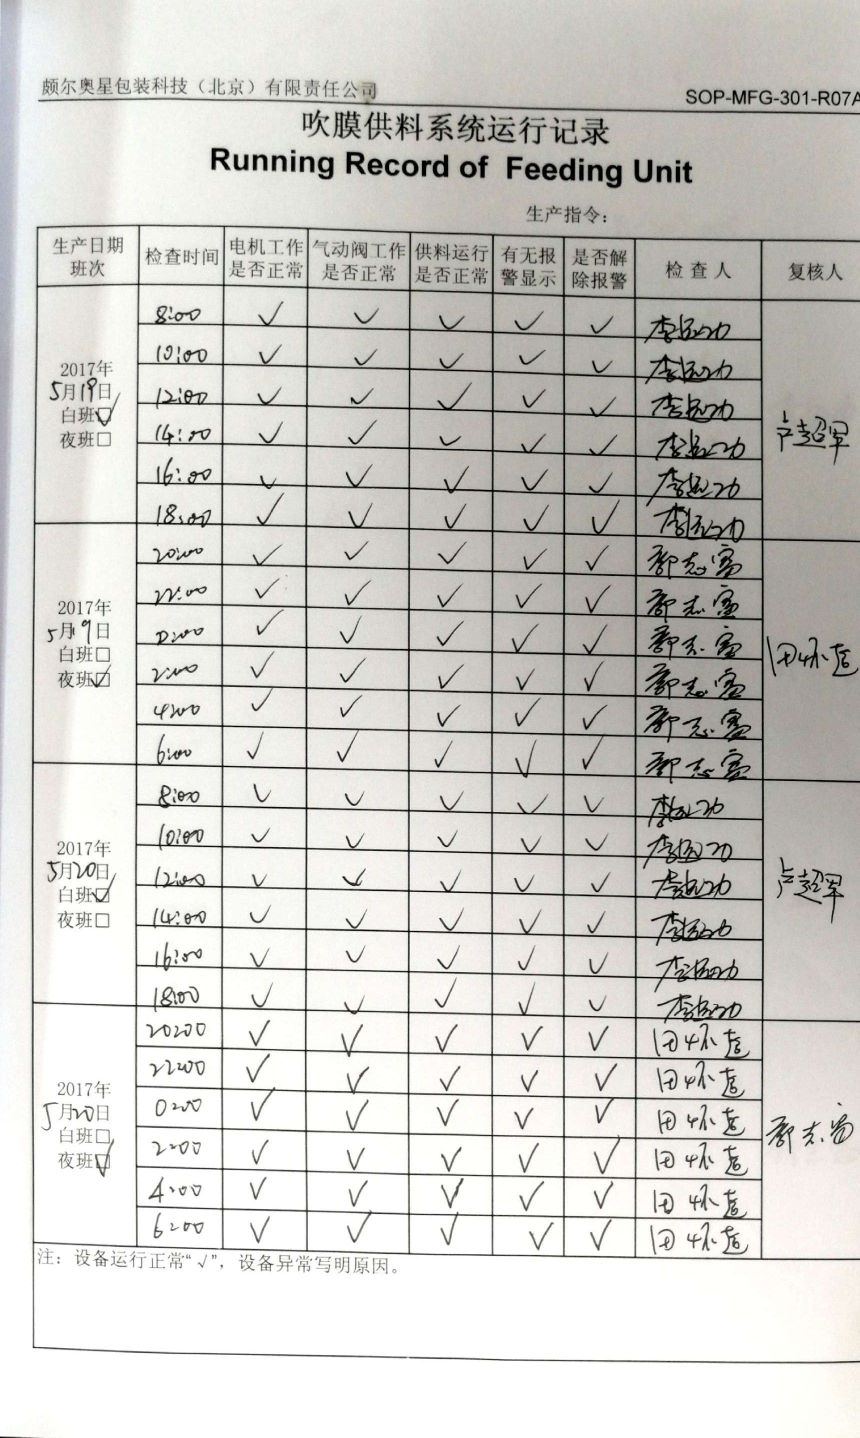 颇尔奥星包装科技（北京）有限责任公司
SOP-MFG-301-R07A
吹膜供料系统运行记录
Running Record of Feeding Unit
生产指令：
生产日期班次 检查时间 电机工作是否正常 气动阀工作是否正常 供料运行是否正常 有无报警显示 是否解除报警 检查人 复核人
2017年
5月19日
白班☑
夜班□
8:00 √ √ √ √ √
10:00 √ √ √ √ √
12:00 √ √ √ √ √
14:00 √ √ √ √ √
16:00 √ √ √ √ √
18:00 √ √ √ √ √
卢超军
2017年
5月19日
白班□
夜班☑
20:00 √ √ √ √ √ 郭志富
22:00 √ √ √ √ √ 郭志富
0:00 √ √ √ √ √ 郭志富
2:00 √ √ √ √ √ 郭志富
4:00 √ √ √ √ √ 郭志富
6:00 √ √ √ √ √ 郭志富
2017年
5月20日
白班☑
夜班□
8:00 √ √ √ √ √
10:00 √ √ √ √ √
12:00 √ √ √ √ √
14:00 √ √ √ √ √
16:00 √ √ √ √ √
18:00 √ √ √ √ √
卢超军
2017年
5月20日
白班□
夜班☑
20:00 √ √ √ √ √
22:00 √ √ √ √ √
0:00 √ √ √ √ √
2:00 √ √ √ √ √
4:00 √ √ √ √ √
6:00 √ √ √ √ √
郭志富
注：设备运行正常“√”，设备异常写明原因。